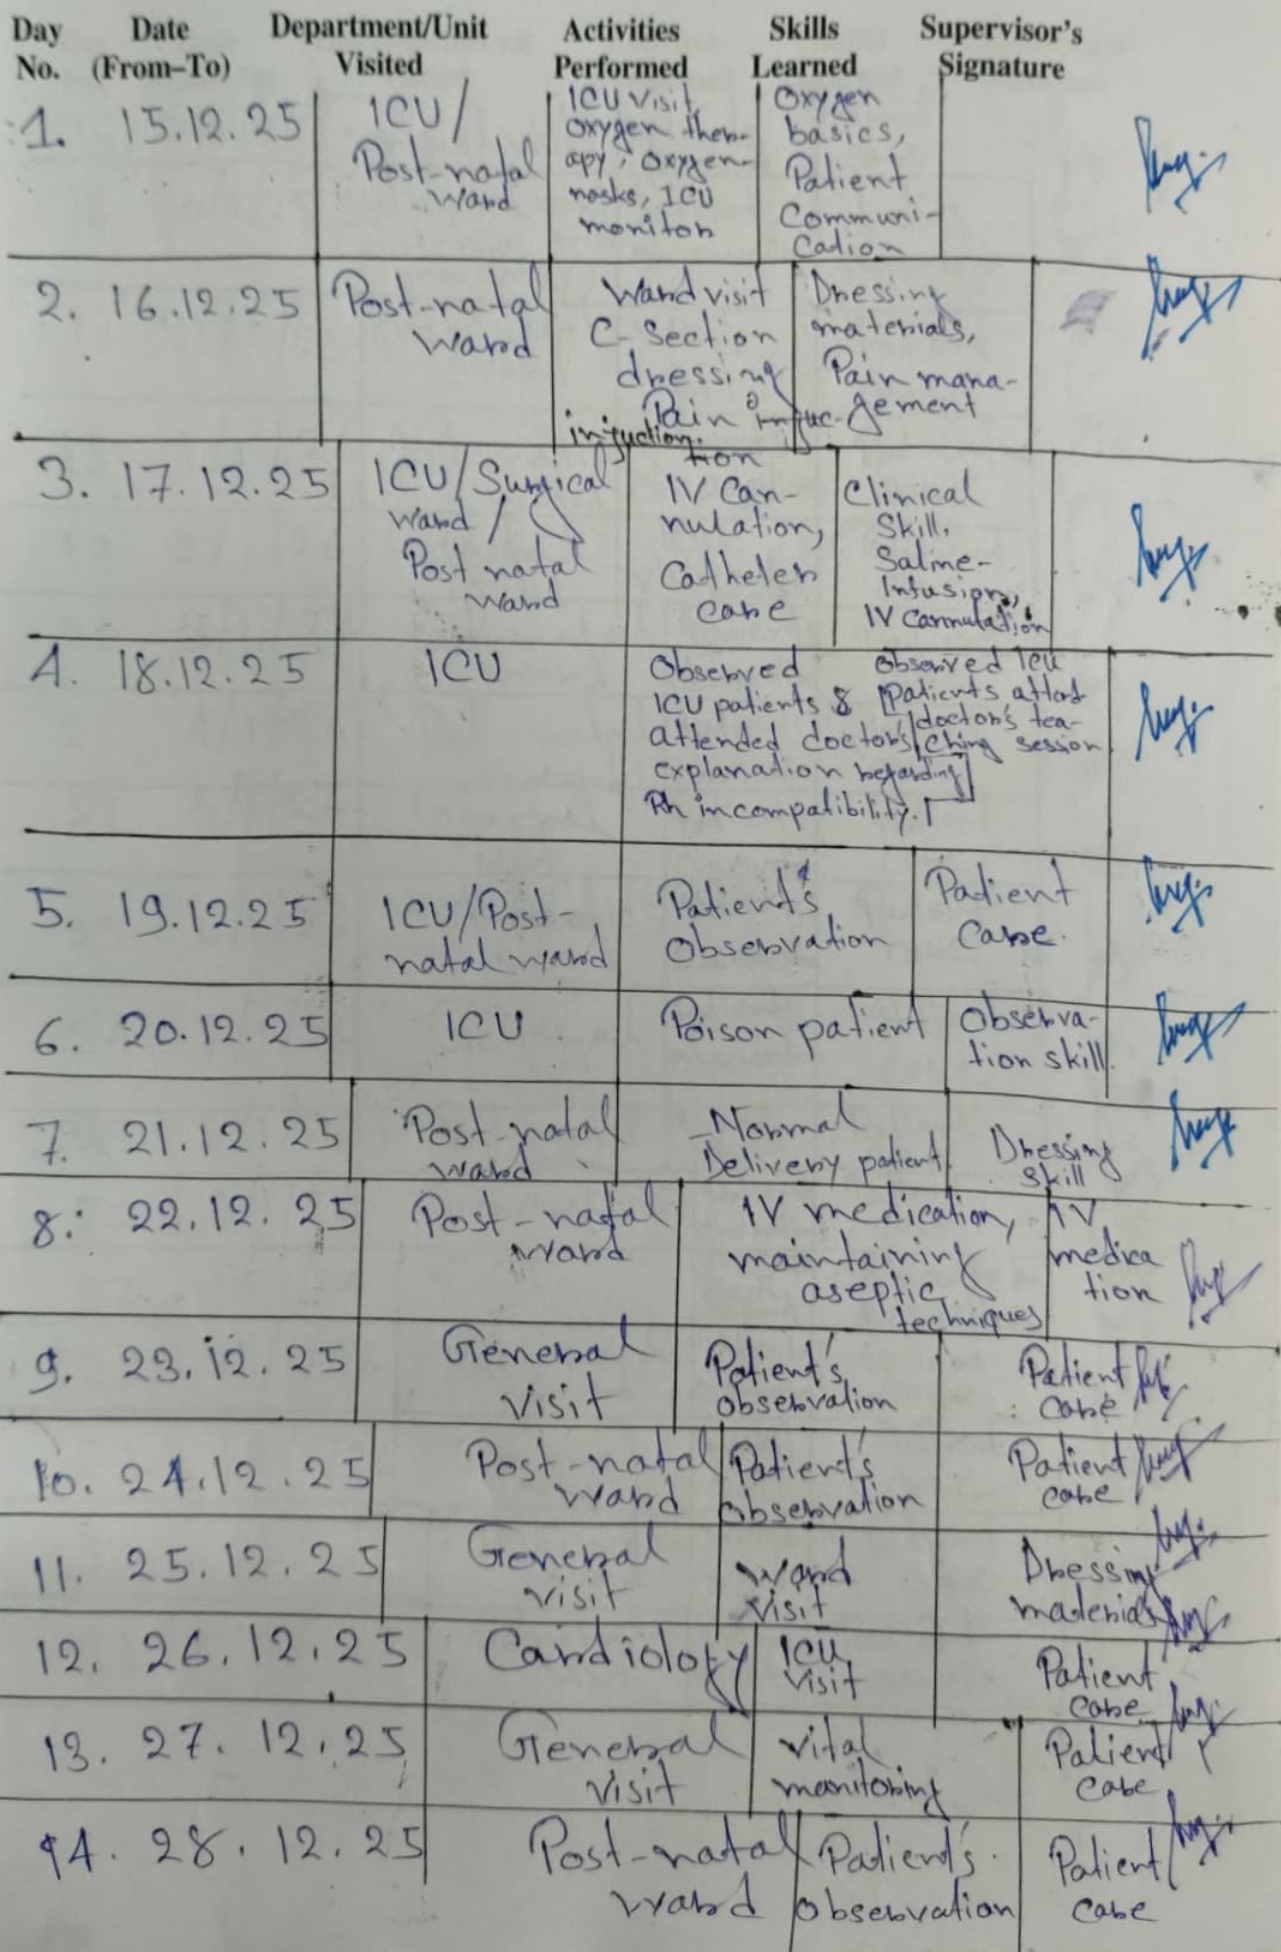 Day Date Department/Unit Activities Skills Supervisor's
No. (From–To) Visited Performed Learned Signature
1. 15.12.25 ICU/
Post-natal
Ward
ICU visit,
oxygen ther-
apy, oxygen-
masks, ICU
monitor
Oxygen
basics,
Patient
Communi-
cation
2. 16.12.25 Post-natal
Ward
Ward visit
C-Section
dressing
Pain injuc-
injuction.
tion
Dressing
materials,
Pain mana-
gement
3. 17.12.25 ICU/Surgical
Ward /
Post natal
Ward
IV Can-
nulation,
Catheter
care
Clinical
Skill,
Saline-
Infusion,
IV Cannulation
4. 18.12.25 ICU
Observed
ICU patients &
attended doctor's
explanation regarding
Rh incompatibility.
Observed ICU
patients attend
doctor's tea-
ching session
5. 19.12.25 ICU/Post-
natal ward
Patient's
Observation
Patient
care.
6. 20.12.25 ICU
Poison patient
Observa-
tion skill.
7. 21.12.25 Post-natal
ward
Normal
Delivery patient
Dressing
Skill
8. 22.12.25 Post-natal
ward
IV medication,
maintaining
aseptic
techniques
IV
medica
tion
9. 23.12.25 General
visit
Patient's
observation
Patient
care
10. 24.12.25 Post-natal
ward
Patient's
observation
Patient
care
11. 25.12.25 General
visit
Ward
visit
Dressing
materials
12. 26.12.25 Cardiology
ICU
visit
Patient
care
13. 27.12.25 General
visit
vital
monitoring
Patient
care
14. 28.12.25 Post-natal
ward
Patient's
observation
Patient
care